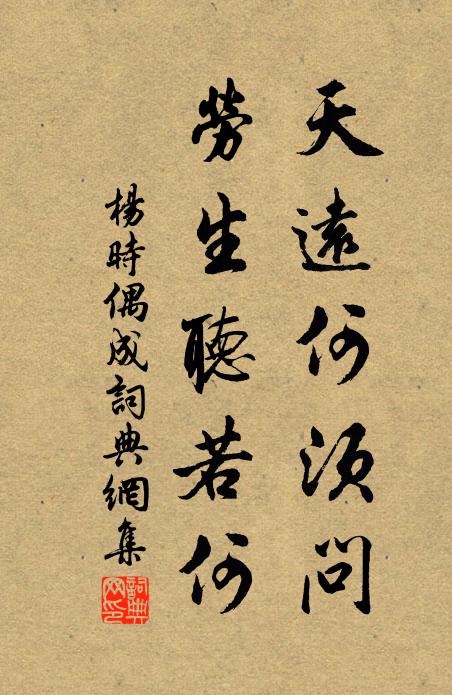 天遠何須問
勞生聽若何
楊時偶成詞典網集
詞典网印